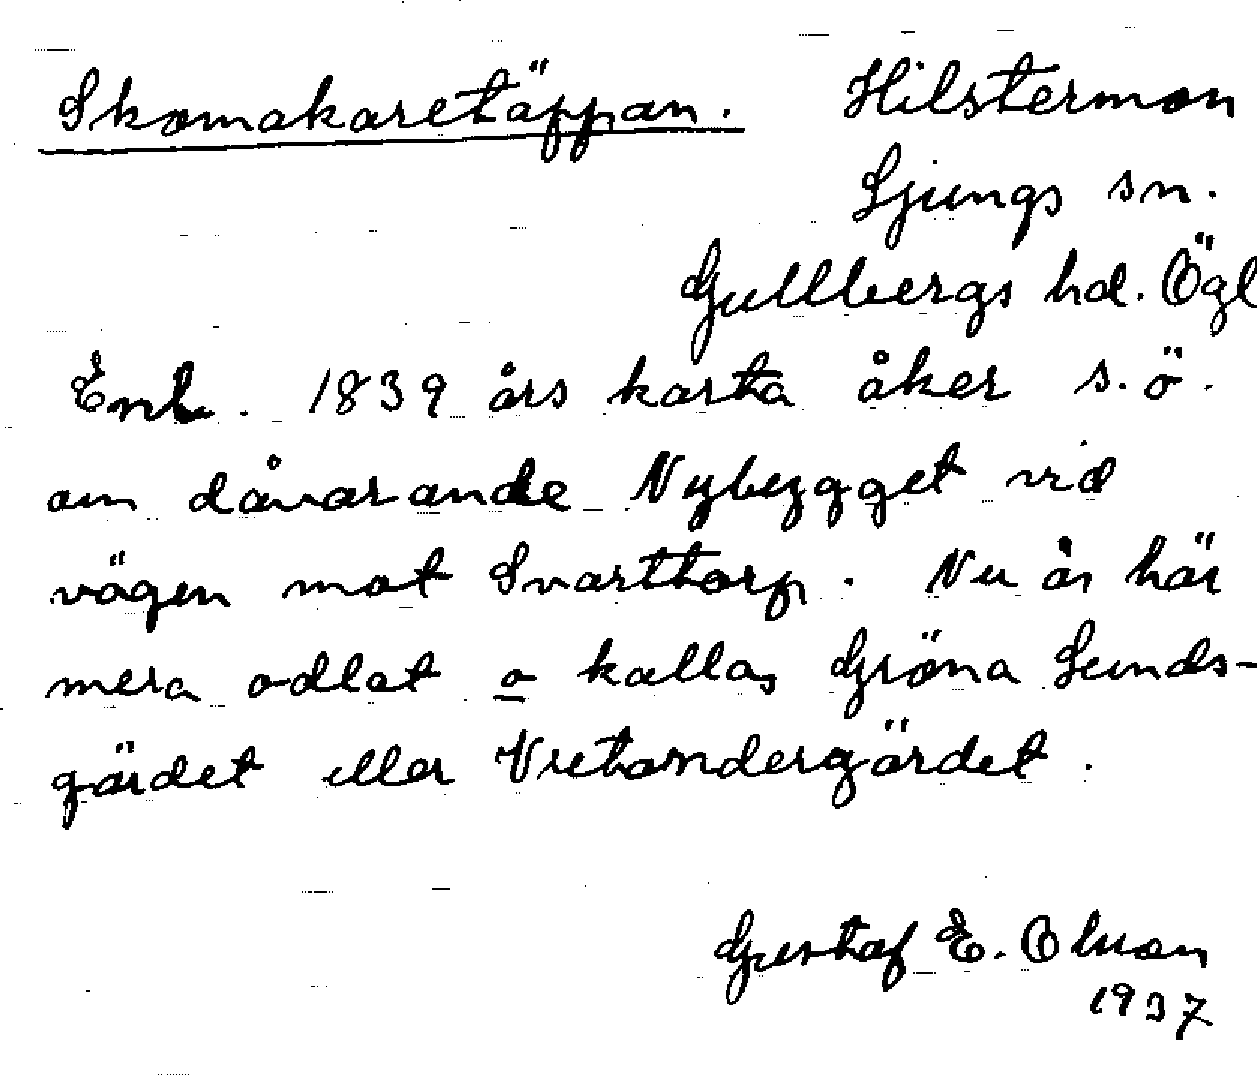 Skomakaretäppan. Hilstermon
Ljungs sn.
Gullbergs hd. Ögl
Enl. 1839 års karta åker s.ö.
om dåvarande Nybygget vid
vägen mot Svarttorp. Nu är här
mera odlat o kallas Gröna Lunds-
gärdet eller Vretandergärdet.
Gustaf E. Olson
1937